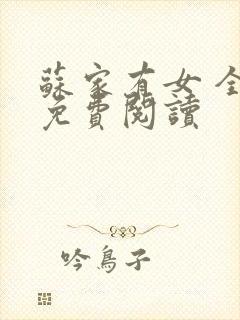 蘇家有女全
免費閱讀
吟鳥子